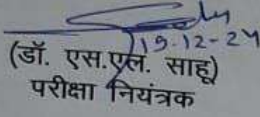 19-12-24
(डॉ. एस.एल. साहू)
परीक्षा नियंत्रक